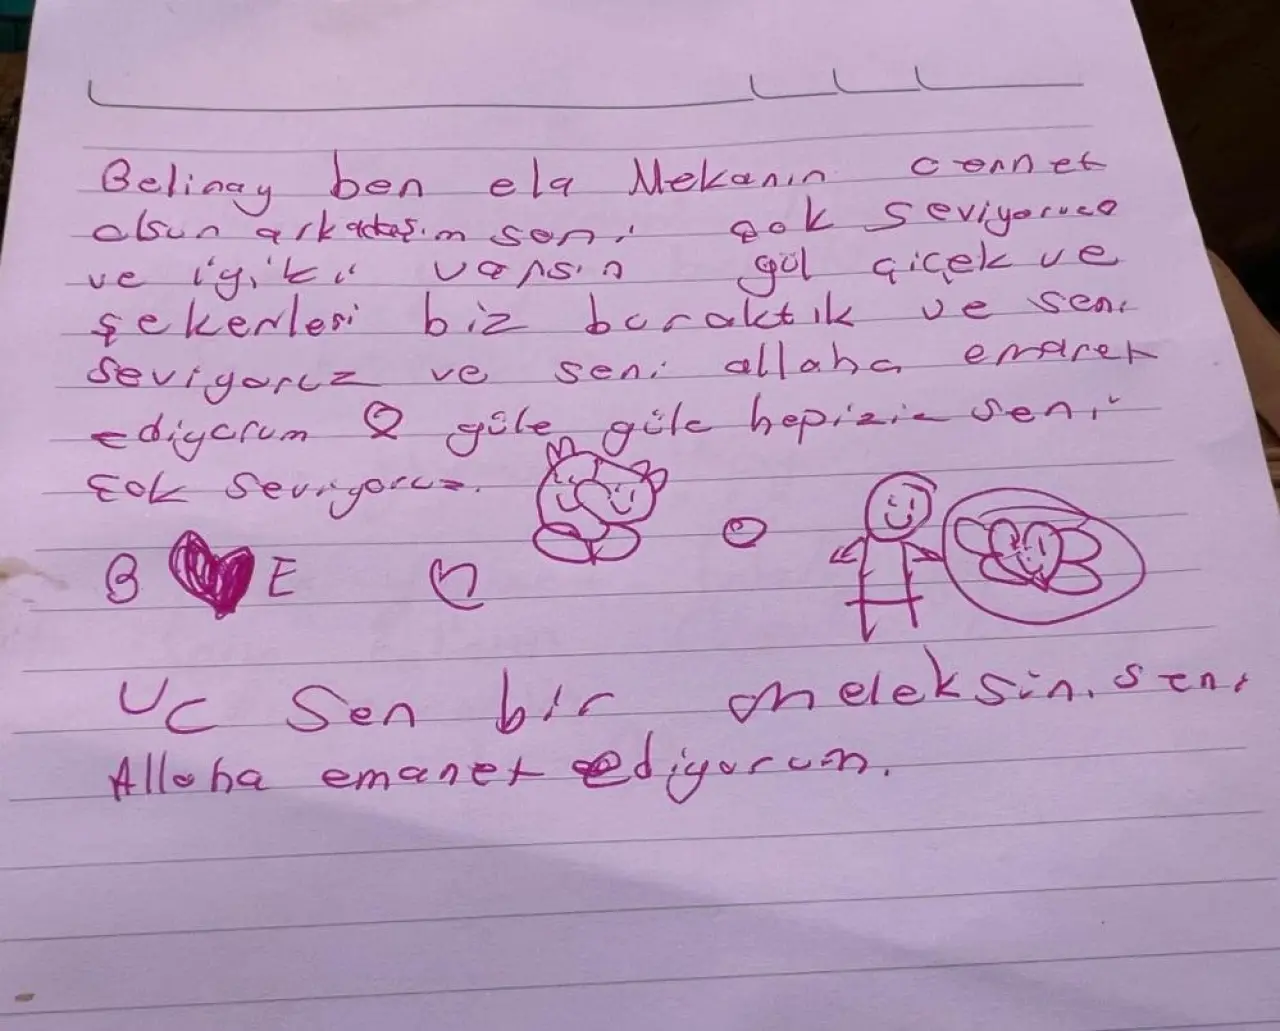 Belinay ben ela Mekanın cennet
olsun arkadaşım seni çok seviyoruz
ve iyiki varsın gül çiçek ve
şekerleri biz buraktık ve seni
seviyoruz ve seni allaha emanet
ediyorum güle güle hepizin seni
çok seviyoruz.
B E
Uc Sen bir meleksin. seni
Allaha emanet ediyorum.